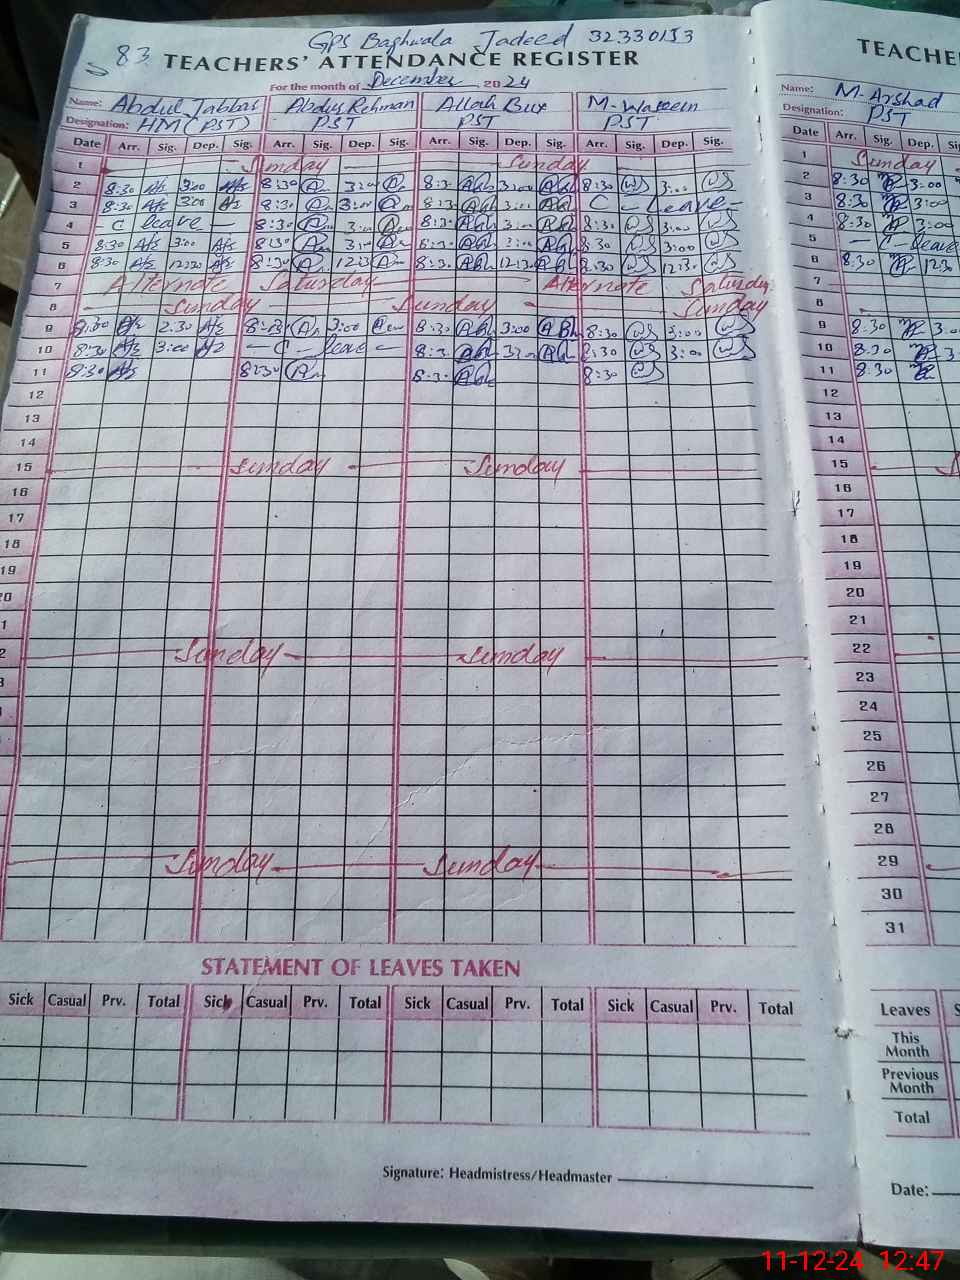 GPS Baghwala Jadeed 32330153
83 TEACHERS' ATTENDANCE REGISTER
For the month of December 2024
Name: Abdul Jabbar Abdur Rehman Allah Bux M. Waseem
Designation: HM (PST) PST PST PST
Date Arr. Sig. Dep. Sig. Arr. Sig. Dep. Sig. Arr. Sig. Dep. Sig. Arr. Sig. Dep. Sig.
1 Sunday Sunday
2 8:30 A/s 3:00 A/s 8:30 3:00 8:30 3:00 8:30 3:00
3 8:30 A/s 3:00 A/s 8:30 3:00 8:30 3:00 C - Leave -
4 - C leave - 8:30 3:00 8:30 3:00 8:30 3:00
5 8:30 A/s 3:00 A/s 8:30 3:00 8:30 3:00 8:30 3:00
6 8:30 A/s 12:30 A/s 8:30 12:30 8:30 12:30 8:30 12:30
7 Alternote Saturday Alternote Saturday
8 Sunday Sunday Sunday
9 8:30 A/s 2:30 A/s 8:30 3:00 8:30 3:00 8:30 3:00
10 8:30 A/s 3:00 - C - leave - 8:30 3:00 8:30 3:00
11 8:30 A/s 8:30 8:30 8:30
12
13
14
15 Sunday Sunday
16
17
18
19
20
1
2 Sunday Sunday
3
Sunday Sunday
STATEMENT OF LEAVES TAKEN
Sick Casual Prv. Total Sick Casual Prv. Total Sick Casual Prv. Total Sick Casual Prv. Total
Signature: Headmistress/Headmaster
TEACHE
Name: M. Arshad
Designation: PST
Date Arr. Sig. Dep.
1 Sunday
2 8:30 3:00
3 8:30 3:00
4 8:30 3:00
5 - C - leave
6 8:30 12:30
7
8
9 8:30 3:0
10 8:30 3
11 8:30
12
13
14
15 S
16
17
18
19
20
21
22
23
24
25
26
27
28
29
30
31
Leaves S
This Month
Previous Month
Total
Date:
11-12-24 12:47